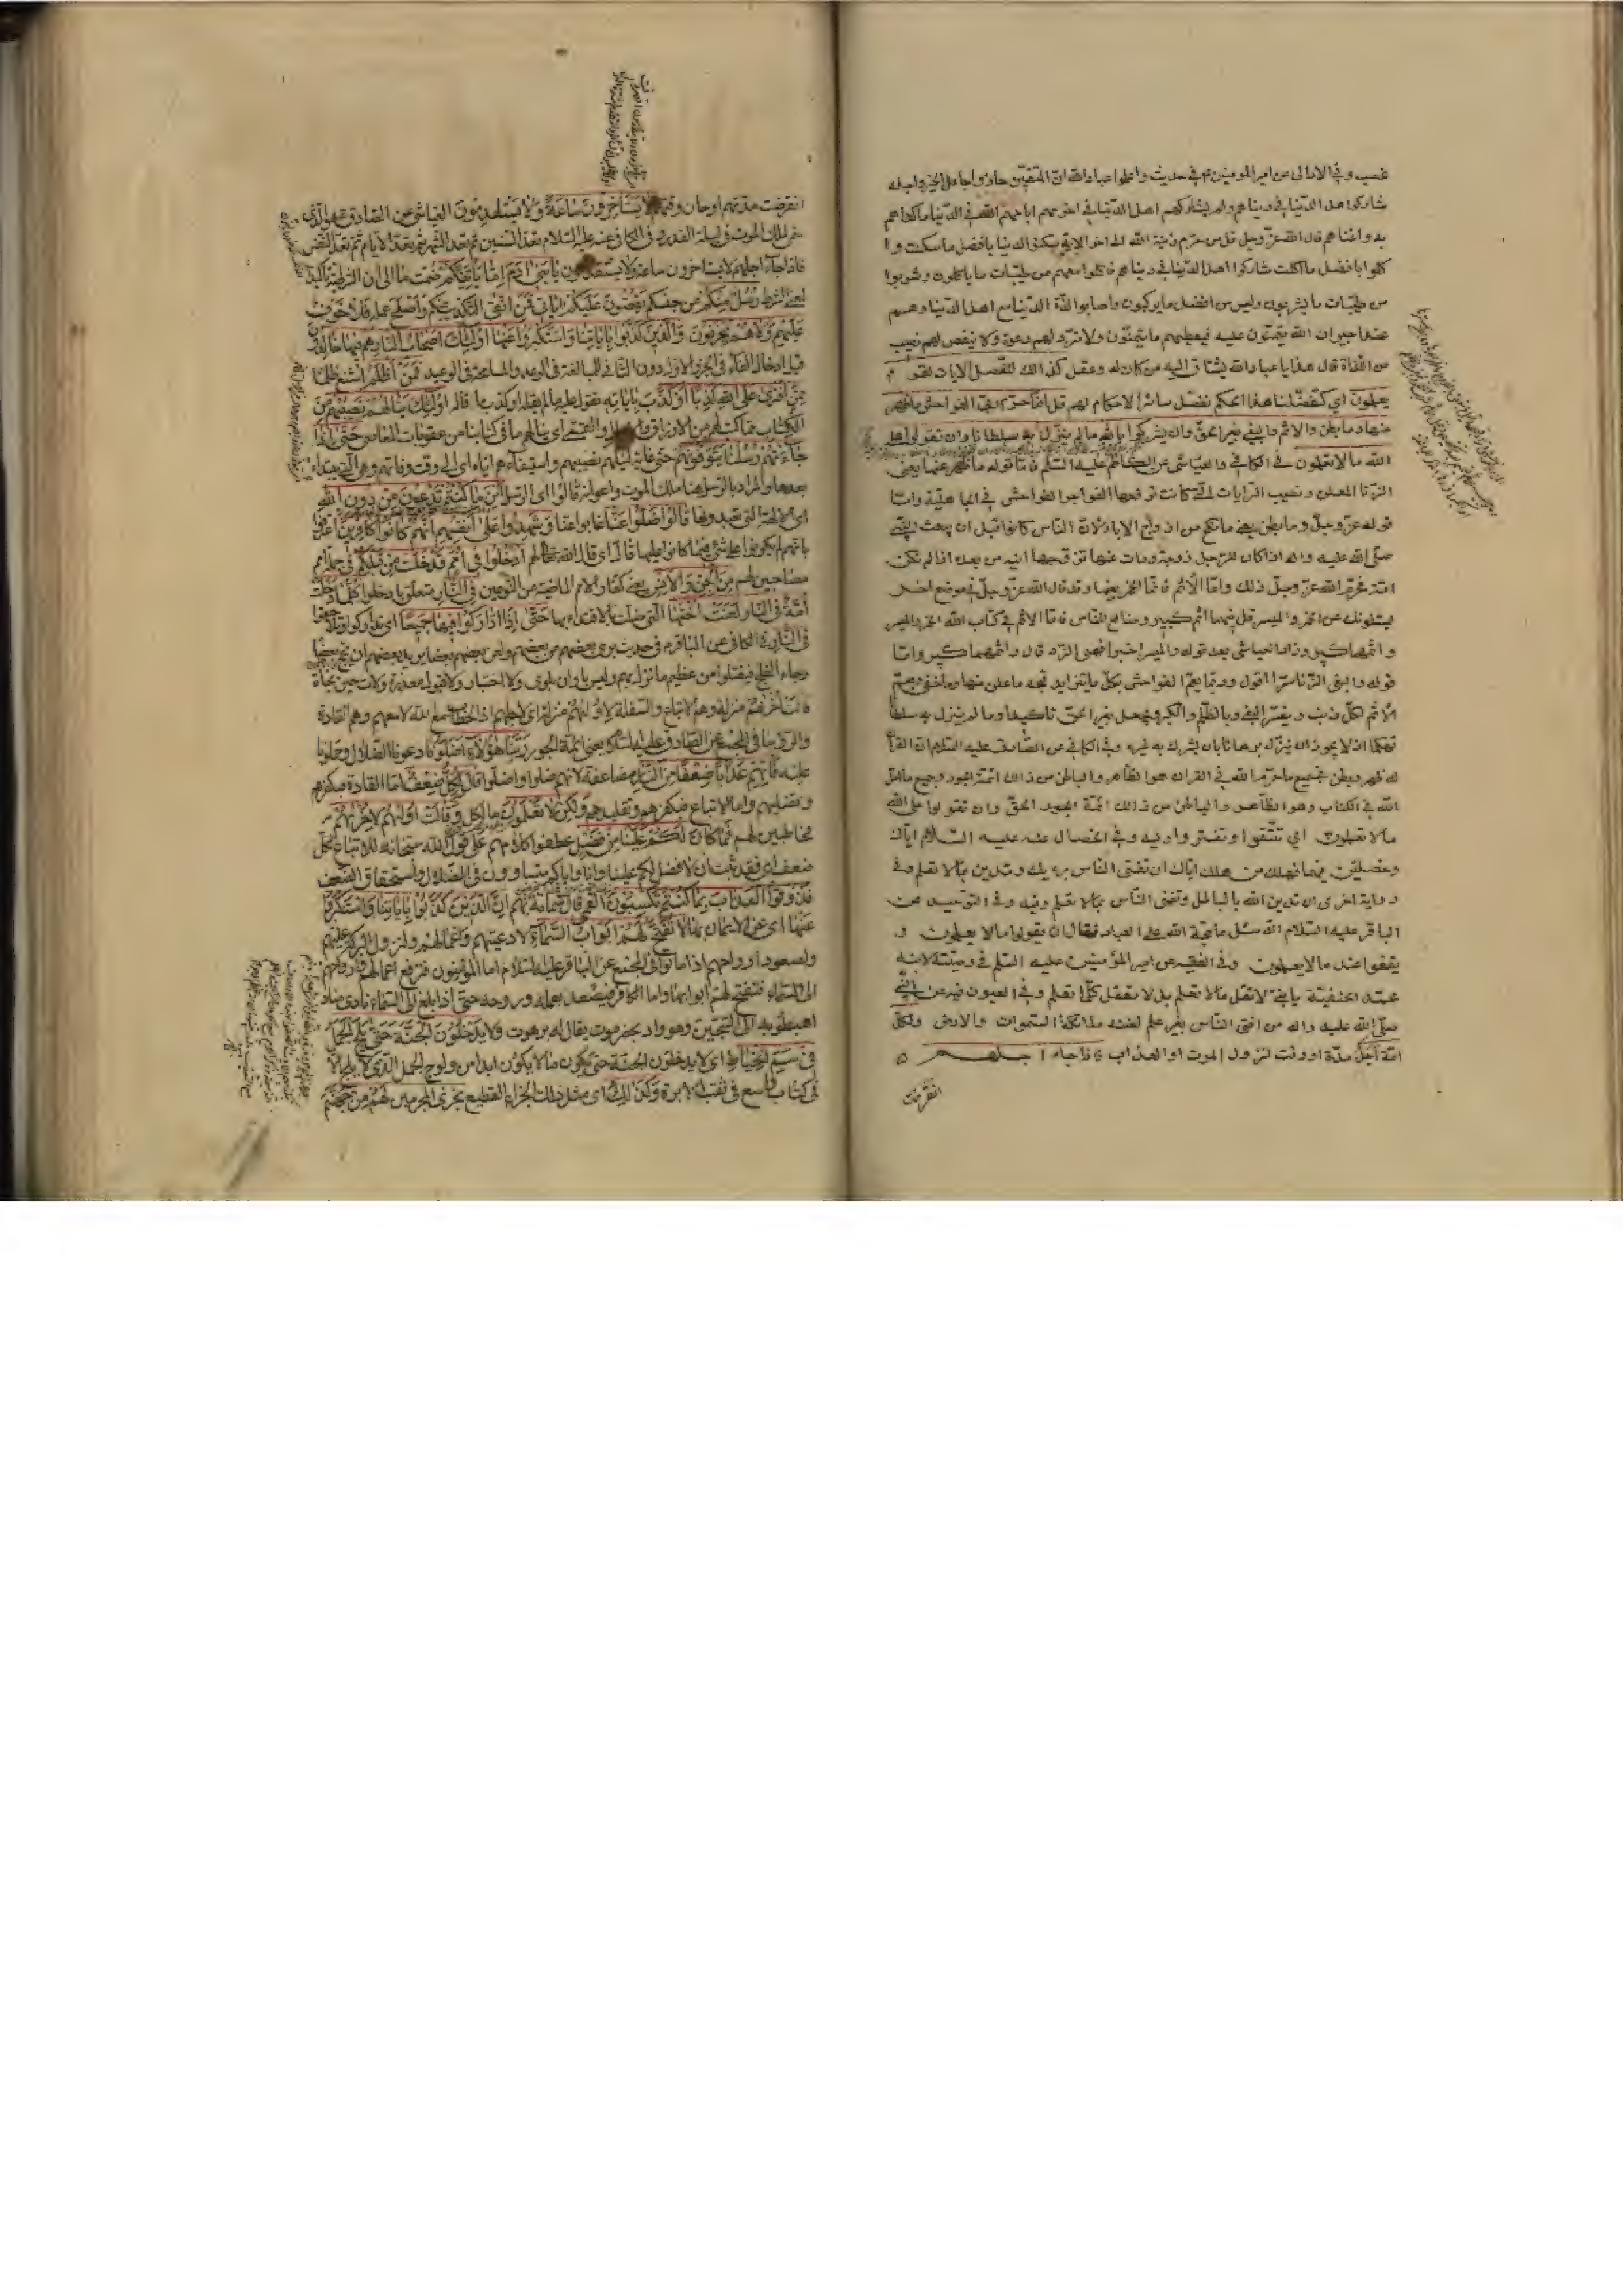 غصب وفي الامالى عن امير المومنين ع في حديث واعلموا عباد الله ان المتقين حازوا عاجل الخير واجله
شاركوا اهل الدنيا في دنياهم ولم يشاركهم اهل الدنيا في اخرتهم اباحهم الله في الدنيا ما كفاهم
به واغناهم قال الله عز وجل قل من حرم زينة الله الى اخر الاية سكنوا الدنيا بافضل ما سكنت وا
كلوا بافضل ما اكلت شاركوا اهل الدنيا في دنياهم فاكلوا معهم من طيبات ما ياكلون وشربوا
من طيبات ما يشربون ولبسوا من افضل ما يركبون واصابوا لذة الدنيا مع اهل الدنيا وهم
غدا جيران الله يتمنون عليه فيعطيهم ما يتمنون ولا ترد لهم دعوة ولا ينقص لهم نصيب
من اللذة قال هذا يا عباد الله يشتاق اليه من كان له عقل كذلك نفصل الايات لقوم
يعلمون اي كتفصيلنا هذا الحكم نفصل سائر الاحكام لهم قل انما حرم ربي الفواحش ما ظهر
منها وما بطن والاثم والبغي بغير الحق وان يشركوا بالله ما لم ينزل به سلطانا وان تقولوا على
الله ما لا تعلمون في الكافي والعياشي عن الكاظم عليه السلم فاما قوله ما ظهر منها يعني
الزنا المعلن ونصب الرايات التي كانت ترفعها الفواجر للفواحش في الجاهلية واما
قوله عز وجل وما بطن يعني ما نكح من ازواج الاباء لان الناس كانوا قبل ان يبعث النبي
صلى الله عليه واله اذا كان للرجل زوجة ومات عنها تزوجها ابنه من بعده اذا لم تكن
امه فحرم الله عز وجل ذلك واما الاثم فانما الخمر بعينها وقد قال الله عز وجل في موضع اخر
يسئلونك عن الخمر والميسر قل فيهما اثم كبير ومنافع للناس فاما الاثم في كتاب الله الخمر والميسر
واثمهما كبير وزاد العياشي بعد قوله والميسر فهي النرد قال واثمهما كبير واما
قوله والبغي الزنا سرا اقول وربما يعم الفواحش بكل ما تزايد قبحه ما علن منها وما خفي ويعم
الاثم لكل ذنب ويفسر البغي بالظلم والكبر ويجعل بغير الحق تاكيدا وما لم ينزل به سلطا
تهكما اذ لا يجوز ان ينزل برهانا بان يشرك به غيره وفي الكافي عن الصادق عليه السلم ان القرآن
له ظهر وبطن فجميع ما حرم الله في القران هو الظاهر والباطن من ذلك ائمة الجور وجميع ما احل
الله في الكتاب وهو الظاهر والباطن من ذلك ائمة الحق وان تقولوا على الله
ما لا تعلمون اي تتقولوا وتفتروا وفي الخصال عنه عليه السلام اياك
وخصلتين فيهما هلك من هلك اياك ان تفتي الناس برايك وتدين بما لا تعلم وفي
رواية اخرى ان تدين الله بالباطل وتفتي الناس بما لا تعلم وفيه وفي التوحيد عن
الباقر عليه السلام انه سئل ما حجة الله على العباد فقال ان يقولوا ما لا يعلمون و
يقفوا عند ما لا يعلمون وفي الفقيه عن امير المؤمنين عليه السلم في وصيته لابنه
محمد الحنفية يا بني لا تقل ما لا تعلم بل لا تقل كلما تعلم وفي العيون فيه عن النبي
صلى الله عليه واله من افتى الناس بغير علم لعنته ملائكة السموات والارض ولكل
امة اجل مدة او وقت لنزول الموت او العذاب فاذا جاء اجلهم
انقرضت
انقرضت مدتهم او حان وقتهم لا يستاخرون ساعة ولا يستقدمون العياشي عن الصادق ع هو الذي
سمي لملك الموت في ليلة القدر وفي الكافي عنه عليه السلام تعد السنين ثم تعد الشهور ثم تعد الايام ثم تعد النفس
فاذا جاء اجلهم لا يستاخرون ساعة ولا يستقدمون يا بني ادم اما ياتينكم ضمت ما الى ان الشرطية تاكيدا
لمعنى الشرط رسل منكم من جنسكم يقصون عليكم اياتي فمن اتقى التكذيب منكم واصلح عمله فلا خوف
عليهم ولا هم يحزنون والذين كذبوا باياتنا واستكبروا عنها اولئك اصحاب النار هم فيها خالدون
قيل ادخال الفاء في الجزاء الاول دون الثاني للمبالغة في الوعد والمسامحة في الوعيد فمن اظلم اشنع ظلما
ممن افترى على الله كذبا او كذب باياته تقول عليه ما لم يقله او كذب ما قاله اولئك ينالهم نصيبهم من
الكتاب مما كتب لهم من الارزاق والاجال والقمي اي ينالهم ما في كتابنا من عقوبات المعاصي حتى اذا
جاءتهم رسلنا يتوفونهم حتى غاية لنيلهم نصيبهم واستيفاءهم اياه اي الى وقت وفاتهم وهي التي يبتداء
بعدها والمراد بالرسل هنا ملك الموت واعوانه قالوا اي الرسل اين ما كنتم تدعون من دون الله
اي الالهة التي تعبدونها قالوا ضلوا عنا غابوا عنا وشهدوا على انفسهم انهم كانوا كافرين اعترفوا
بانهم لم يكونوا على شيء فيما كانوا عليه قال اي قال الله تعالى لهم ادخلوا في امم قد خلت من قبلكم في جملة امم
مصاحبين لهم من الجن والانس يعني كفار الامم الماضية من النوعين في النار متعلق بادخلوا كلما دخلت
امة في النار لعنت اختها التي ضلت بالاقتداء بها حتى اذا اداركوا فيها جميعا اي تداركوا وتلاحقوا
في النار في الكافي عن الباقر ع في حديث برئ بعضهم من بعض ولعن بعضهم بعضا يريد بعضهم ان يحج بعضا
رجاء الفلج فيفلتوا من عظيم ما نزل بهم وليس باوان بلوى ولا اختبار ولا قبول معذرة ولات حين نجاة
قالت اخريهم منزلة وهم الاتباع والسفلة لاوليهم منزلة اي لاجلهم اذ الخطاب مع الله لا معهم وهم القادة
والرؤسا في المجمع عن الصادق عليه السلم يعني ائمة الجور ربنا هؤلاء اضلونا دعونا الى الضلال وحملونا
عليه فاتهم عذابا ضعفا من النار مضاعفة لانهم ضلوا واضلوا قال لكل ضعف اما القادة فبكفرهم
وتضليلهم واما الاتباع فبكفرهم وتقليدهم ولكن لا تعلمون ما لكل وقالت اوليهم لاخريهم
مخاطبين لهم فما كان لكم علينا من فضل عطفوا كلامهم على قول الله سبحانه للاتباع لكل
ضعف اي فقد ثبت ان لا فضل لكم علينا وانا واياكم متساوون في الضلال واستحقاق الضعف
فذوقوا العذاب بما كنتم تكسبون القمي قال شماتة بهم ان الذين كذبوا باياتنا واستكبروا
عنها اي عن الايمان بها لا تفتح لهم ابواب السماء لادعيتهم واعمالهم ولنزول البركة عليهم
ولصعود ارواحهم اذا ماتوا في المجمع عن الباقر عليه السلام اما المؤمنون فترفع اعمالهم وارواحهم
الى السماء فتفتح لهم ابوابها واما الكافر فيصعد بعمله وروحه حتى اذا بلغ الى السماء نادى مناد
اهبطوا به الى السجين وهو واد بحضرموت يقال له برهوت ولا يدخلون الجنة حتى يلج الجمل
في سم الخياط اي لا يدخلون الجنة حتى يكون ما لا يكون ابدا من ولوج الجمل الذي لا يلج الا
في باب واسع في ثقب الابرة وكذلك اي مثل ذلك الجزاء الفظيع نجزي المجرمين لهم من جهنم